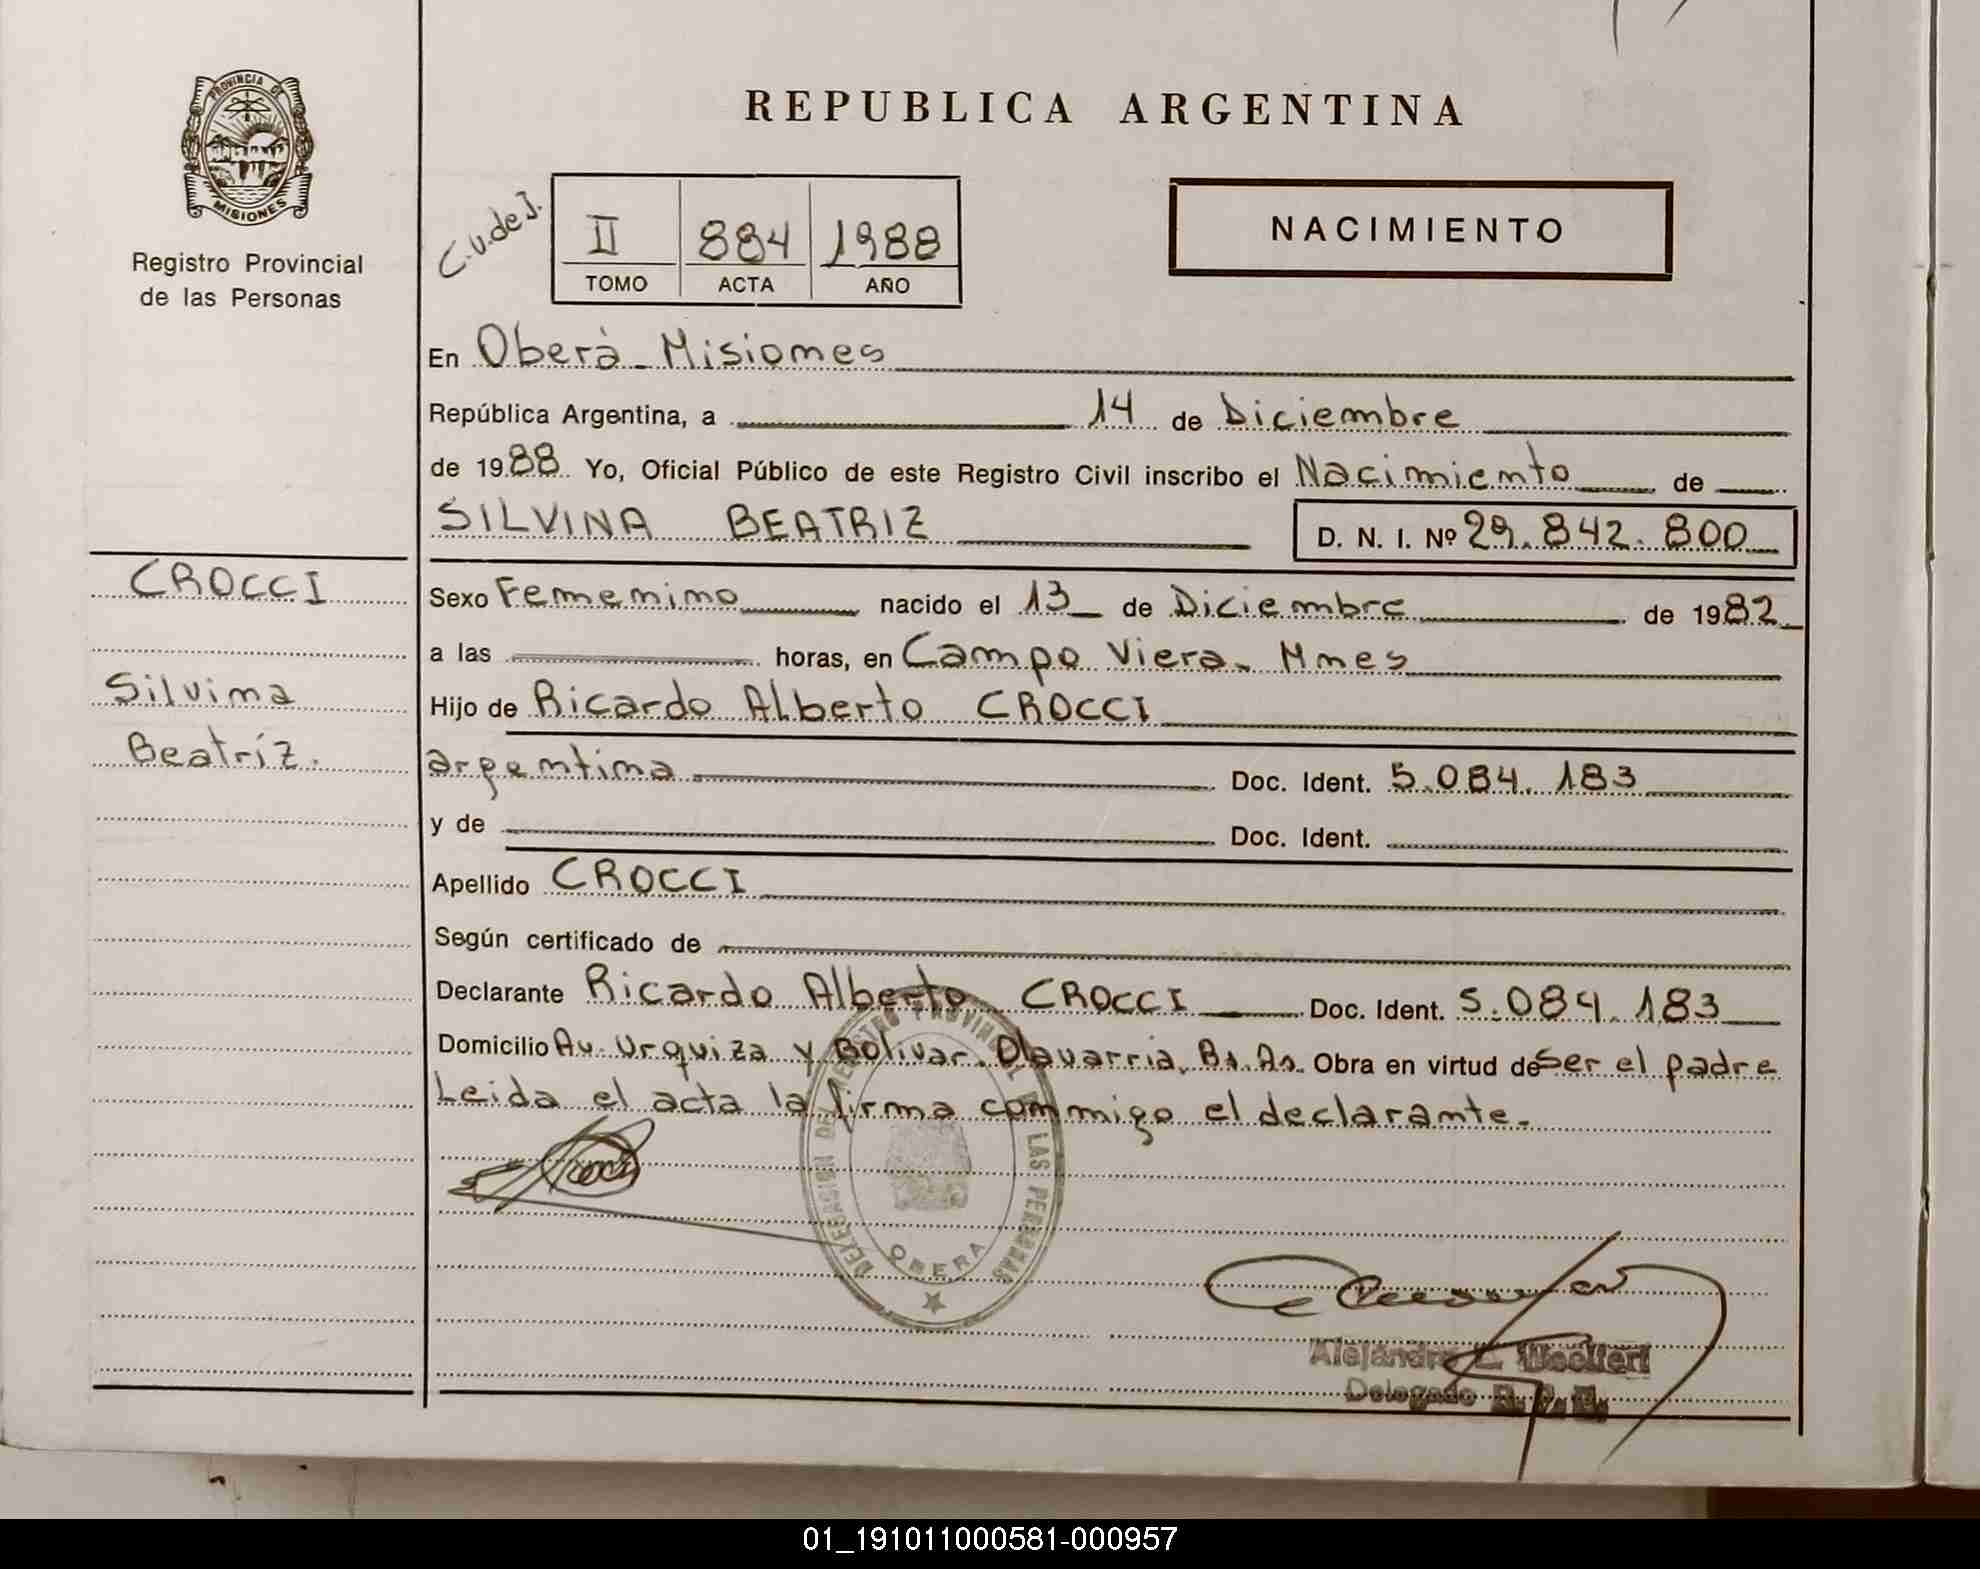 PROVINCIA DE
MISIONES
Registro Provincial
de las Personas
REPUBLICA ARGENTINA
C.U.de J.
II 884 1988
TOMO ACTA AÑO
NACIMIENTO
En Oberà - Misiones
República Argentina, a 14 de Diciembre
de 1988 Yo, Oficial Público de este Registro Civil inscribo el Nacimiento de
SILVINA BEATRIZ D. N. I. Nº 29.842.800
CROCCI
Silvina
Beatríz.
Sexo Femenino nacido el 13 de Diciembre de 1982
a las horas, en Campo Viera - Mnes
Hijo de Ricardo Alberto CROCCI
argentina Doc. Ident. 5.084.183
y de Doc. Ident.
Apellido CROCCI
Según certificado de
Declarante Ricardo Alberto CROCCI Doc. Ident. 5.084.183
Domicilio Av. Urquiza y Bolivar. Olavarria. Bs. As. Obra en virtud de ser el padre
Leida el acta la firma conmigo el declarante.
DELEGACION DE REGISTRO PROVINCIAL DE LAS PERSONAS
OBERA
Delegado R. P. P.
01_191011000581-000957